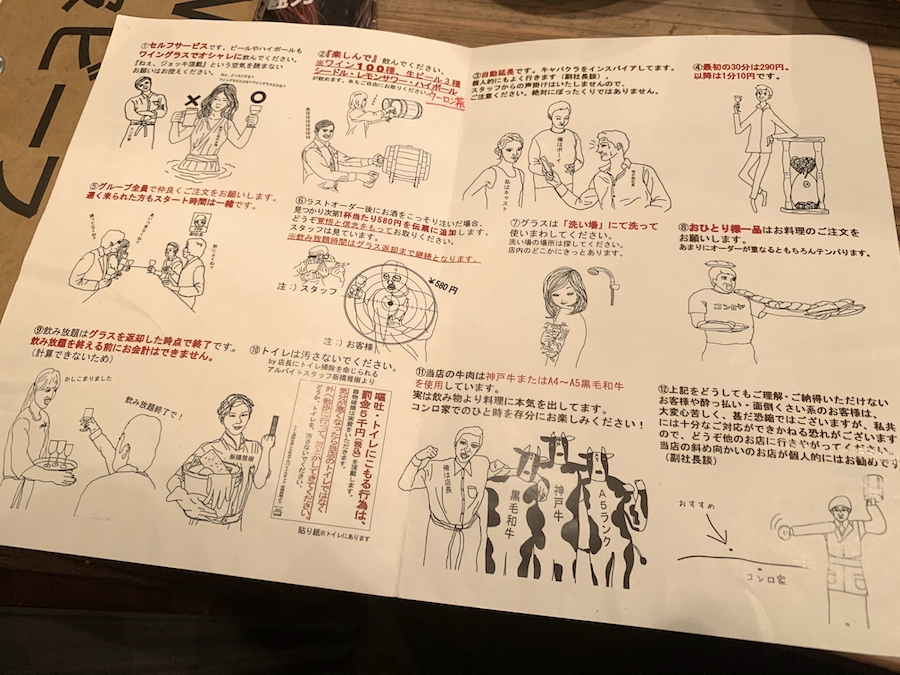 ①セルフサービスです。ビールやハイボールも
ワイングラスでオシャレに飲んでください。
『ねぇ、ジョッキ頂戴』という空気を読まない
お願いはお控えください。
②『楽しんで』飲んでください。
※ワイン100種、生ビール3種
シードル・レモンサワー・ハイボール
が飲めます。氷もご自由にお取りください。
ウーロン茶
③自動延長です。キャバクラをインスパイアしてます。
個人的にもよく行きます（副社長談）。
スタッフからの声掛けはいたしませんので、
ご注意ください。絶対にぼったくりではありません。
俺はボーイ
私はキャスト
④最初の30分は290円。
以降は1分10円です。
⑤グループ全員で仲良くご注文をお願いします。
遅く来られた方もスタート時間は一緒です。
⑥ラストオーダー後にお酒をこっそり注いだ場合、
見つかり次第1杯当たり580円を伝票に追加します。
どうぞ覚悟と信念をもってお取りください。
スタッフは見ています。
※飲み放題時間はグラス返却まで継続となります。
注：）スタッフ
¥580円
注：）お客様
⑦グラスは「洗い場」にて洗って
使いまわしてください。
洗い場の場所は探してください。
店内のどこかにきっとあります。
⑧おひとり様一品はお料理のご注文を
お願いします。
あまりにオーダーが重なるともちろんテンパります。
コンロヤ
⑨飲み放題はグラスを返却した時点で終了です。
飲み放題を終える前にお会計はできません。
（計算できないため）
かしこまりました
飲み放題終了で！
⑩トイレは汚さないでください。
by店長にトイレ掃除を命じられる
アルバイトスタッフ板橋雅樹より
板橋雅樹
嘔吐・トイレにこもる行為は、
罰金一千円（税込）を頂戴します。
貼り紙※トイレにあります
⑪当店の牛肉は神戸牛またはA4～A5黒毛和牛
を使用しています。
実は飲み物より料理に本気を出してます。
コンロ家でのひと時を存分にお楽しみください！
俺は店長
黒毛和牛
神戸牛
A5ランク
⑫上記をどうしてもご理解・ご納得いただけない
お客様や酔っ払い・面倒くさい系のお客様は、
大変心苦しく、甚だ恐縮ではございますが、私共
には十分なご対応ができかねる恐れがございます
ので、どうぞ他のお店に行きやがってください。
当店の斜め向かいのお店が個人的にはお勧めです
（副社長談）
おすすめ
コンロ家